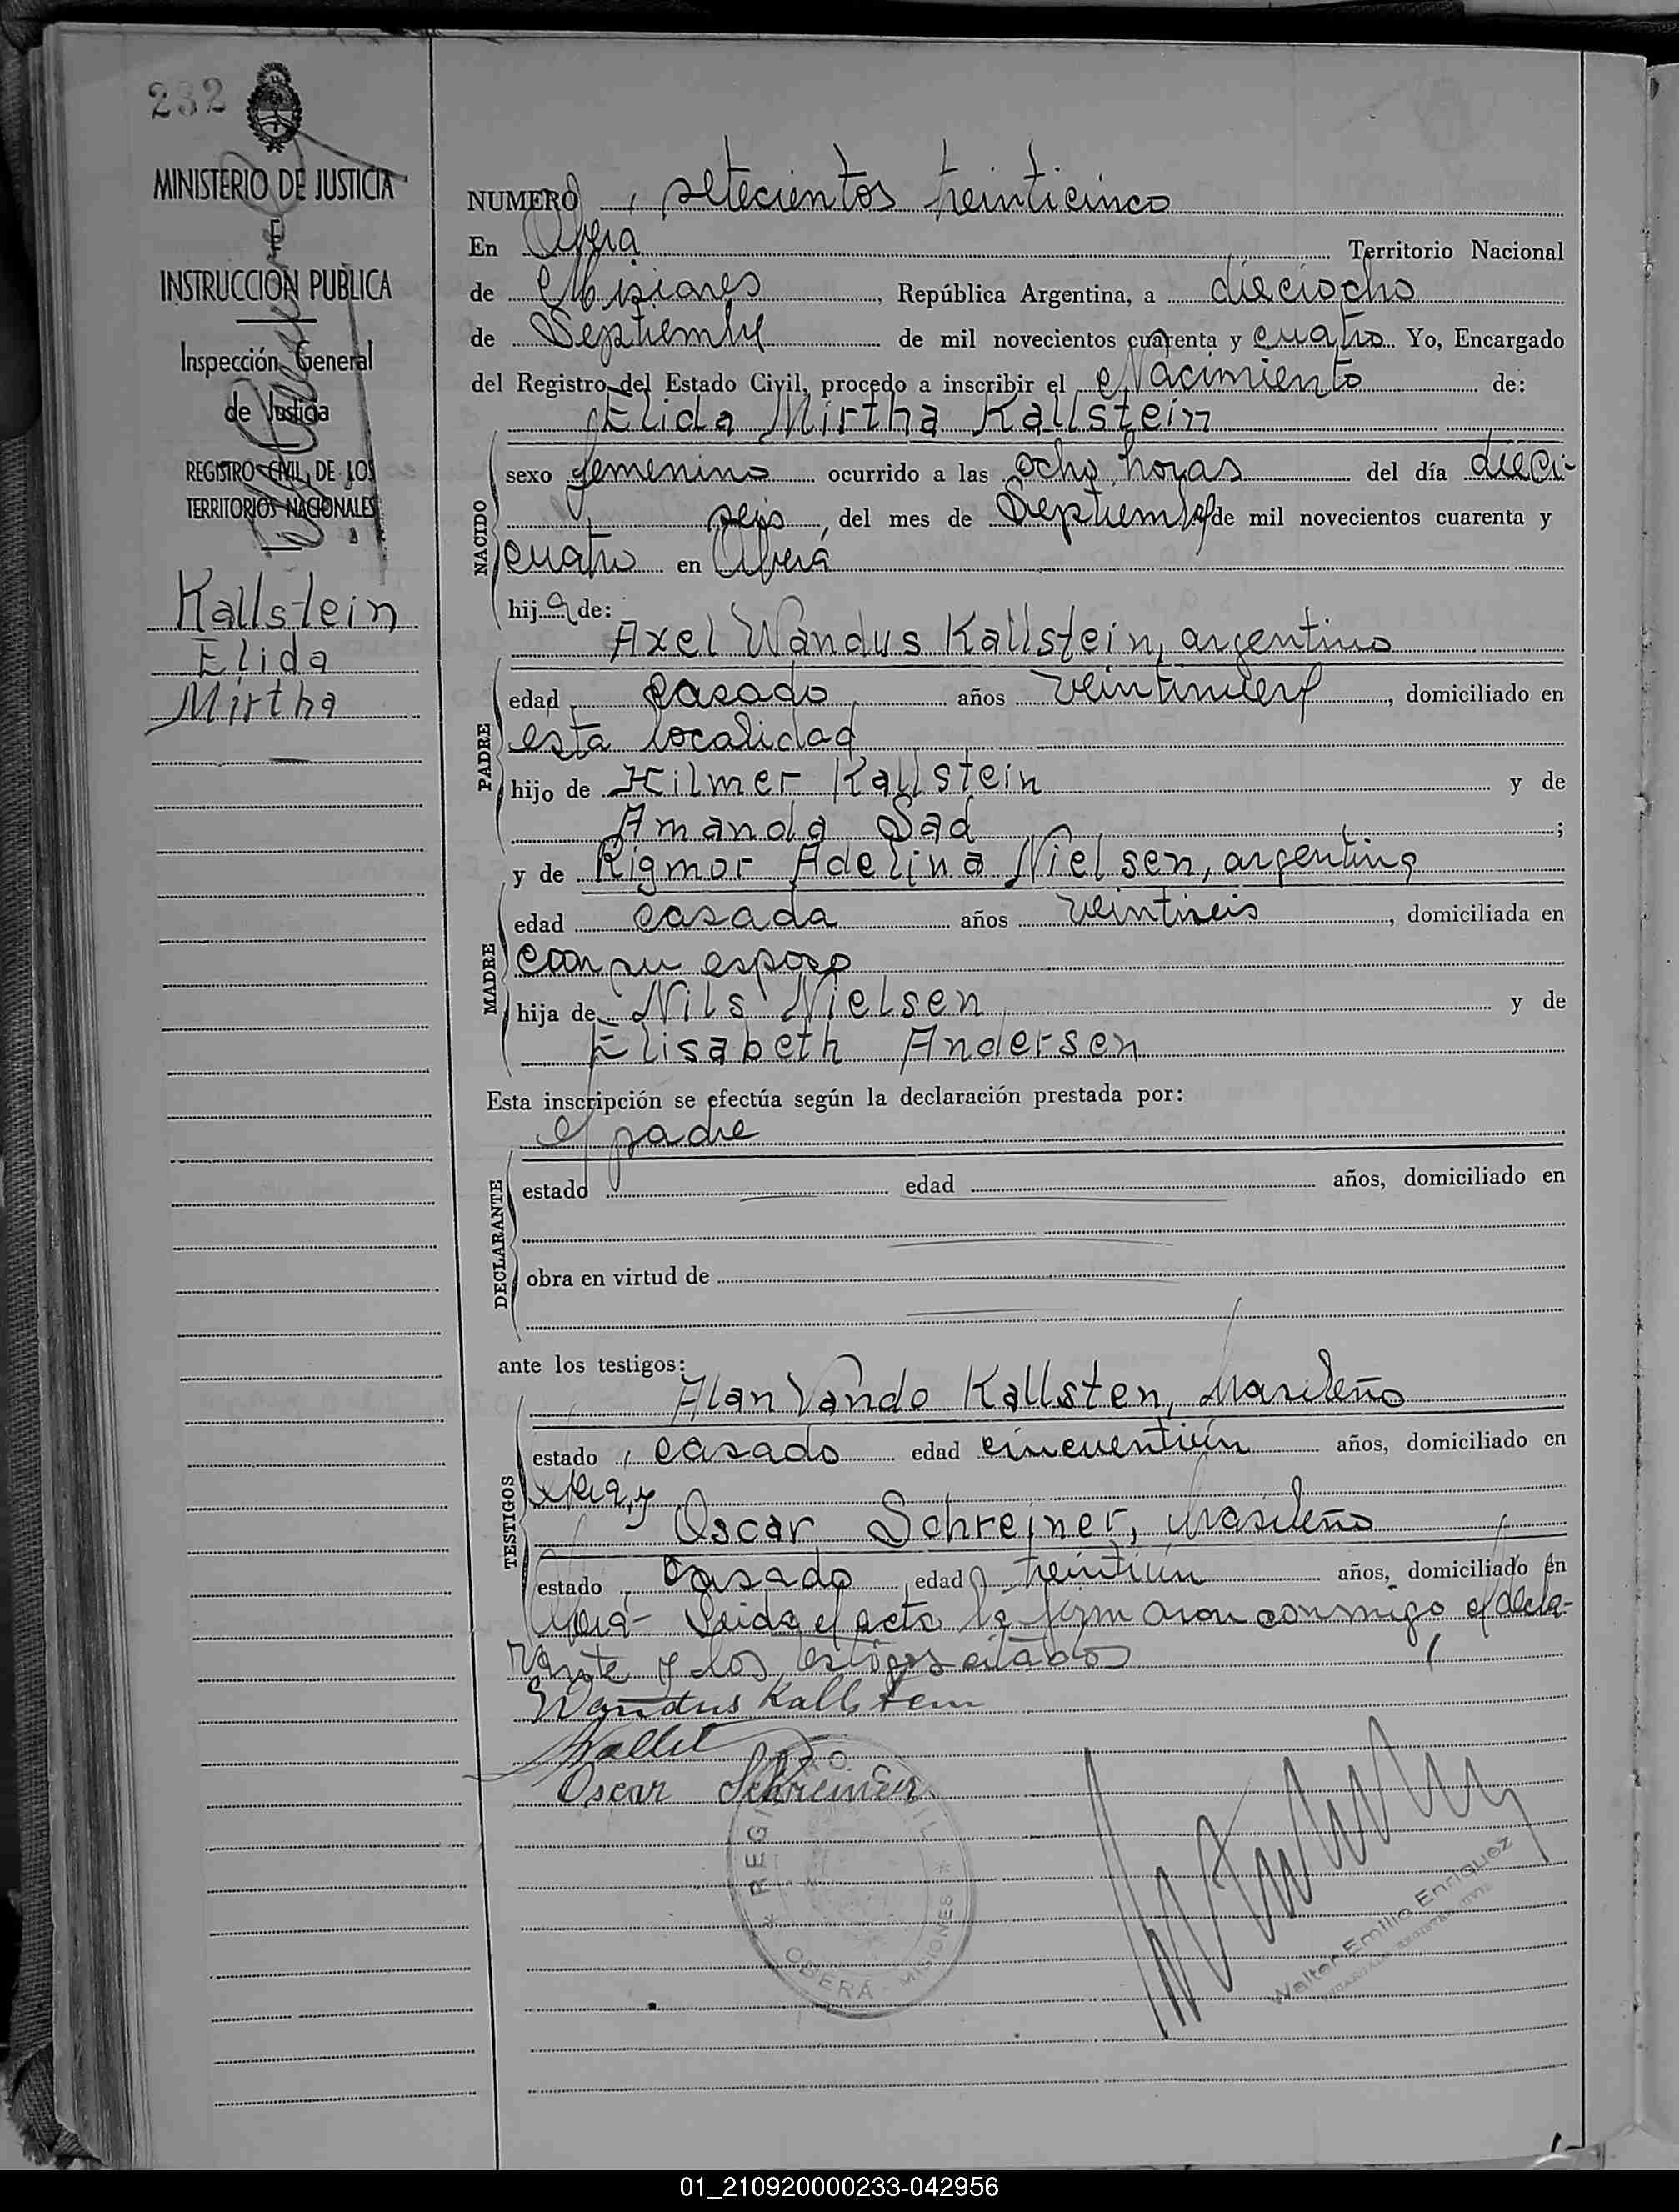 232
MINISTERIO DE JUSTICIA
E
INSTRUCCION PUBLICA
Inspección General
de Justicia
REGISTRO CIVIL DE LOS
TERRITORIOS NACIONALES
Kallstein
Elida
Mirtha
NUMERO setecientos treinticinco
En Oberá Territorio Nacional
de Misiones, República Argentina, a dieciocho
de Septiembre de mil novecientos cuarenta y cuatro Yo, Encargado
del Registro del Estado Civil, procedo a inscribir el Nacimiento de:
Elida Mirtha Kallstein
NACIDO
sexo femenino ocurrido a las ocho horas del día dieci-
seis, del mes de Septiembre de mil novecientos cuarenta y
cuatro en Oberá
hija de:
Axel Wandus Kallstein, argentino
PADRE
edad casado años veintinueve, domiciliado en
esta localidad
hijo de Hilmer Kallstein y de
Amanda Sad ;
y de Rigmor Adelina Nielsen, argentina
MADRE
edad casada años veintiseis, domiciliada en
con su esposo
hija de Nils Nielsen y de
Elisabeth Andersen
Esta inscripción se efectúa según la declaración prestada por:
el padre
DECLARANTE
estado edad años, domiciliado en
obra en virtud de
ante los testigos:
Alan Vando Kallsten, brasileño
TESTIGOS
estado, casado edad cincuentiún años, domiciliado en
Oberá, y
Oscar Schreiner, brasileño
estado, casado, edad treintiún años, domiciliado en
Oberá- Leida el acta la firmaron conmigo el decla-
rante y los testigos citados
Wandus Kallstein
Oscar Schreiner
REGISTRO CIVIL
* OBERÁ - MISIONES *
Walter Emilio Enriquez
01_210920000233-042956